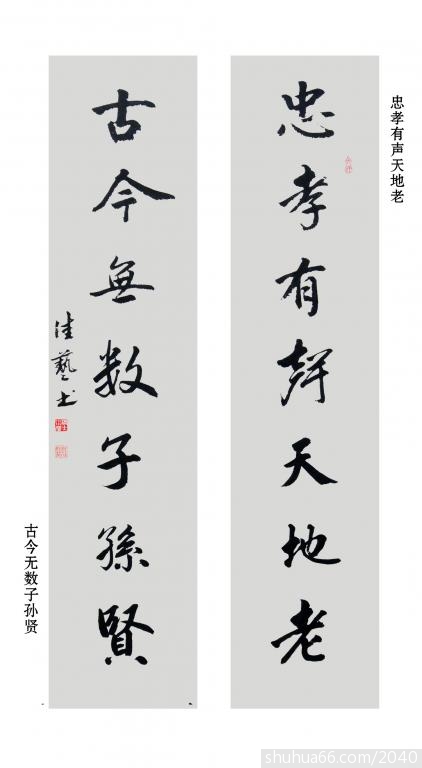 忠孝有声天地老
忠孝有聲天地老
古今無数子孫賢
佳藝书
古今无数子孙贤
shuhua66.com/2040